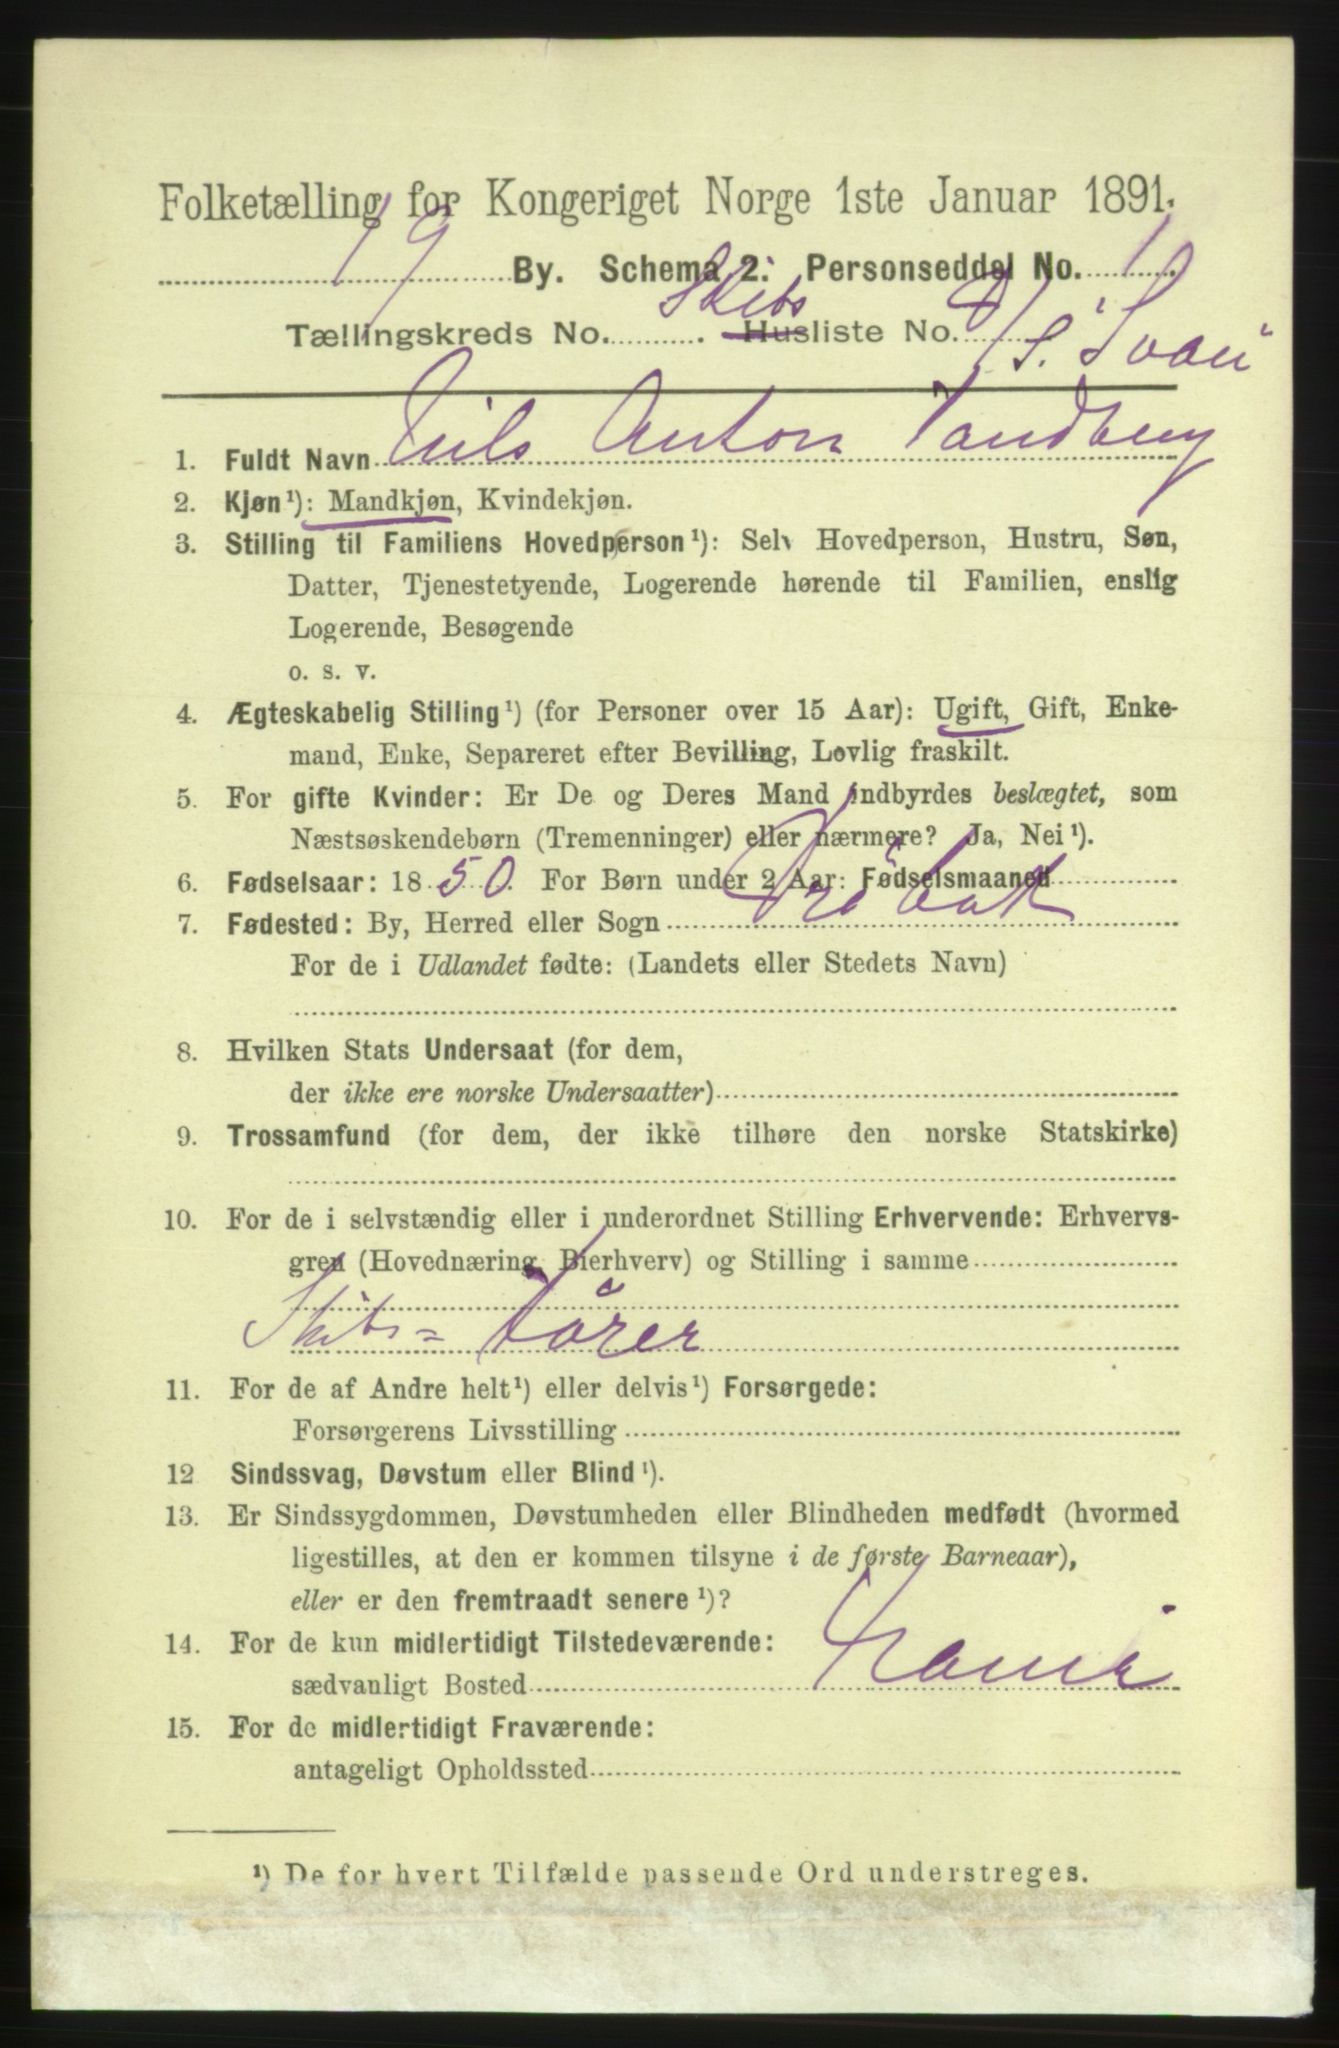 Folketælling for Kongeriget Norge 1ste Januar 1891.
19 By. Schema 2. Personseddel No. 10
Tællingskreds No. . Skibs Husliste No.
S. "Svan"
1. Fuldt Navn Nils Anton Sandberg
2. Kjøn¹): Mandkjøn, Kvindekjøn.
3. Stilling til Familiens Hovedperson¹): Selv Hovedperson, Hustru, Søn,
Datter, Tjenestetyende, Logerende hørende til Familien, enslig
Logerende, Besøgende
o. s. v.
4. Ægteskabelig Stilling¹) (for Personer over 15 Aar): Ugift, Gift, Enke-
mand, Enke, Separeret efter Bevilling, Lovlig fraskilt.
5. For gifte Kvinder: Er De og Deres Mand indbyrdes beslægtet, som
Næstsøskendebørn (Tremenninger) eller nærmere? Ja, Nei¹).
6. Fødselsaar: 1850. For Børn under 2 Aar: Fødselsmaaned
7. Fødested: By, Herred eller Sogn Dröbak
For de i Udlandet fødte: (Landets eller Stedets Navn)
8. Hvilken Stats Undersaat (for dem,
der ikke ere norske Undersaatter)
9. Trossamfund (for dem, der ikke tilhøre den norske Statskirke)
10. For de i selvstændig eller i underordnet Stilling Erhvervende: Erhvervs-
gren (Hovednæring, Bierhverv) og Stilling i samme
Skibs=förer
11. For de af Andre helt¹) eller delvis¹) Forsørgede:
Forsørgerens Livsstilling
12 Sindssvag, Døvstum eller Blind¹).
13. Er Sindssygdommen, Døvstumheden eller Blindheden medfødt (hvormed
ligestilles, at den er kommen tilsyne i de første Barneaar),
eller er den fremtraadt senere¹)?
14. For de kun midlertidigt Tilstedeværende:
sædvanligt Bosted
15. For de midlertidigt Fraværende:
antageligt Opholdssted
¹) De for hvert Tilfælde passende Ord understreges.